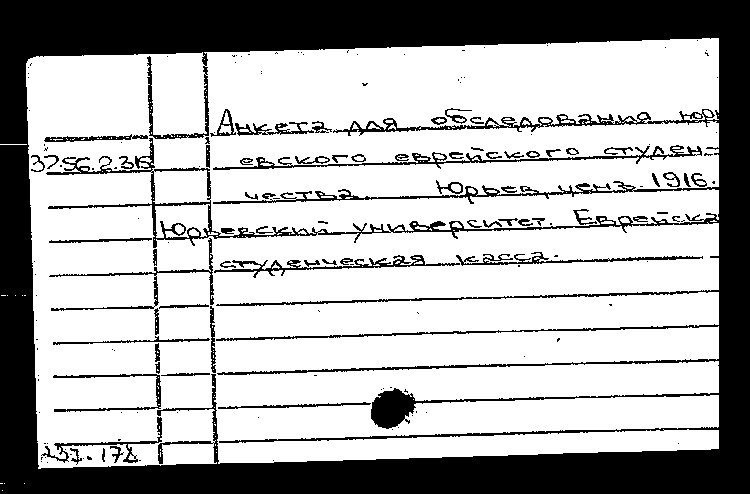 Анкета для обследования юрь
37.56.2.315 евского еврейского студен-
чества. Юрьев, ценз. 1916.
Юрьевский университет. Еврейска
студенческая касса.
237.178